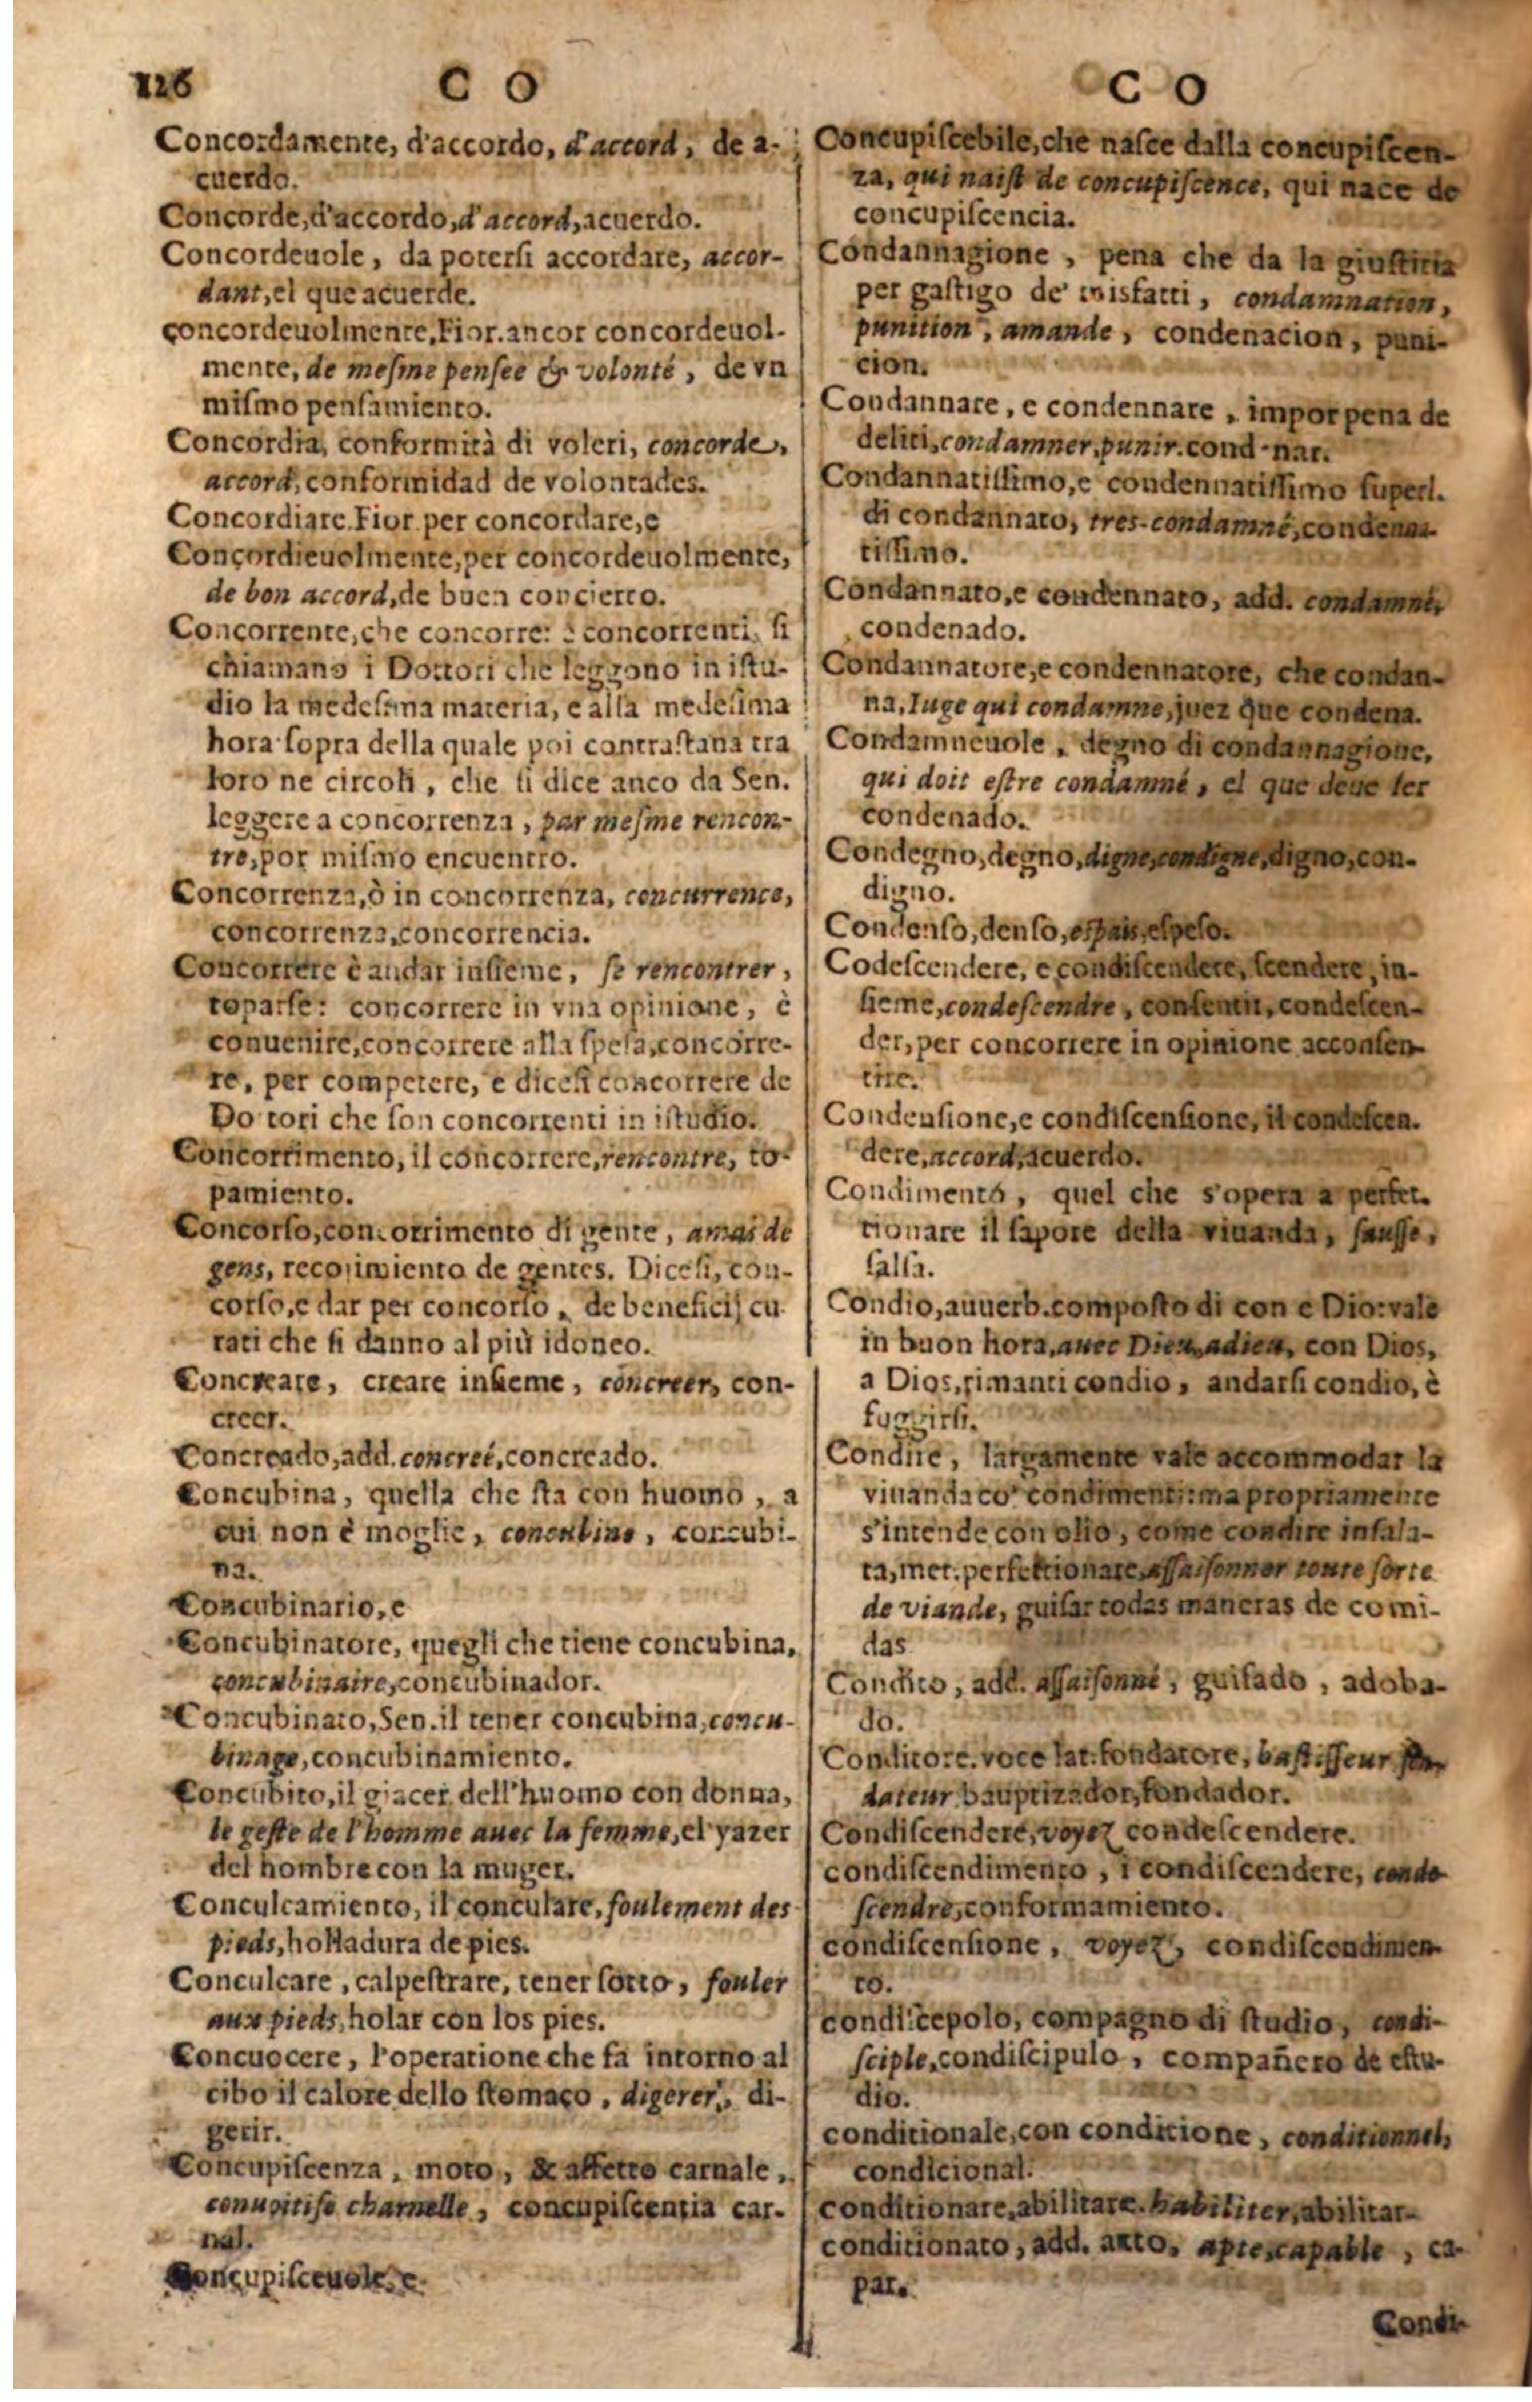 126 C O C O
Concordamente, d'accordo, d'accord, de a-
cuerdo.
Concorde, d'accordo, d'accord, acuerdo.
Concordeuole, da poterſi accordare, accor-
dant, el que acuerde.
concordeuolmente, Fior. ancor concordeuol-
mente, de meſme penſee & volonté, de vn
miſmo penſamiento.
Concordia, conformità di voleri, concorde,
accord, conformidad de volontades.
Concordiare. Fior. per concordare, e
Concordieuolmente, per concordeuolmente,
de bon accord, de buen concierto.
Concorrente, che concorre: e concorrenti, ſi
chiamano i Dottori che leggono in iſtu-
dio la medeſima materia, e alla medeſima
hora ſopra della quale poi contraſtana tra
loro ne circoli, che ſi dice anco da Sen.
leggere a concorrenza, par meſme rencon-
tre, por miſmo encuentro.
Concorrenza, ò in concorrenza, concurrence,
concorrenza, concorrencia.
Concorrere è andar inſieme, ſe rencontrer,
toparſe: concorrere in vna opinione, è
conuenire, concorrere alla ſpeſa, concorre-
re, per competere, e diceſi concorrere de
Dottori che ſon concorrenti in iſtudio.
Concorrimento, il concorrere, rencontre, to-
pamiento.
Concorſo, concorrimento di gente, amas de
gens, recojimiento de gentes. Diceſi, con-
corſo, e dar per concorſo, de beneficij cu-
rati che ſi danno al più idoneo.
Concreare, creare inſieme, concreer, con-
creer.
Concreado, add. concreé, concreado.
Concubina, quella che ſta con huomo, a
cui non è moglie, concubine, concubi-
na.
Concubinario, e
Concubinatore, quegli che tiene concubina,
concubinaire, concubinador.
Concubinato, Sen. il tener concubina, concu-
binage, concubinamiento.
Concubito, il giacer dell'huomo con donna,
le geſte de l'homme auec la femme, el yazer
del hombre con la muger.
Conculcamiento, il conculare, foulement des
pieds, holladura de pies.
Conculcare, calpeſtrare, tener ſotto, fouler
aux pieds, holar con los pies.
Concuocere, l'operatione che fa intorno al
cibo il calore dello ſtomaco, digerer, di-
gerir.
Concupiſcenza, moto, & affetto carnale,
conuoitiſe charnelle, concupiſcentia car-
nal.
Concupiſceuole, e
Concupiſcebile, che naſce dalla concupiſcen-
za, qui naiſt de concupiſcence, qui nace de
concupiſcencia.
Condannagione, pena che da la giuſtitia
per gaſtigo de' misfatti, condamnation,
punition, amande, condenacion, puni-
cion.
Condannare, e condennare, impor pena de
deliti, condamner, punir. condenar.
Condannatiſſimo, e condennatiſſimo ſuperl.
di condannato, tres-condamné, condena-
tiſſimo.
Condannato, e condennato, add. condamné,
condenado.
Condannatore, e condennatore, che condan-
na, Iuge qui condamne, juez que condena.
Condamneuole, degno di condannagione,
qui doit eſtre condamné, el que deue ſer
condenado.
Condegno, degno, digne, condigne, digno, con-
digno.
Condenſo, denſo, eſpais, eſpeſo.
Codeſcendere, e condiſcendere, ſcendere, in-
ſieme, condeſcendre, conſentir, condeſcen-
der, per concorrere in opinione acconſen-
tire.
Condenſione, e condiſcenſione, il condeſcen-
dere, accord, acuerdo.
Condimento, quel che s'opera a perfet-
tionare il ſapore della viuanda, ſauſſe,
ſalſa.
Condio, auuerb. compoſto di con e Dio: vale
in buon hora, auec Dieu, adieu, con Dios,
a Dios, rimanti condio, andarſi condio, è
fuggirſi.
Condire, largamente vale accommodar la
viuanda co' condimenti: ma propriamente
s'intende con olio, come condire inſala-
ta, met. perfettionare, aſſaiſonner toute ſorte
de viande, guiſar todas maneras de comi-
das
Condito, add. aſſaiſonné, guiſado, adoba-
do.
Conditore. voce lat. fondatore, baſtiſſeur fon-
dateur bauptizador, fondador.
Condiſcendere, voyez condeſcendere.
condiſcendimento, i condiſcendere, conde-
ſcendre, conformamiento.
condiſcenſione, voyez, condiſcendimen-
to.
condiſcepolo, compagno di ſtudio, condi-
ſciple, condiſcipulo, compañero de eſtu-
dio.
conditionale, con conditione, conditionnel,
condicional.
conditionare, abilitare. habiliter, abilitar-
conditionato, add. atto, apte, capable, ca-
par.
Condi-